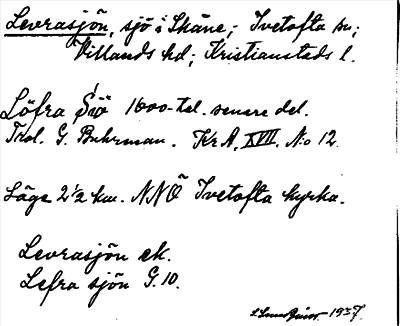 Levrasjön, sjö i Skåne; Ivetofta sn;
Villands hd; Kristianstads l.
Löfra Siö 1600-tal. senare del.
Trol. G. Buhrman. Kr A, XVII. N:o 12.
Läge 2 1/2 km. NNÖ Ivetofta kyrka.
Levrasjön ek.
Lefra sjön G. 10.
1927.